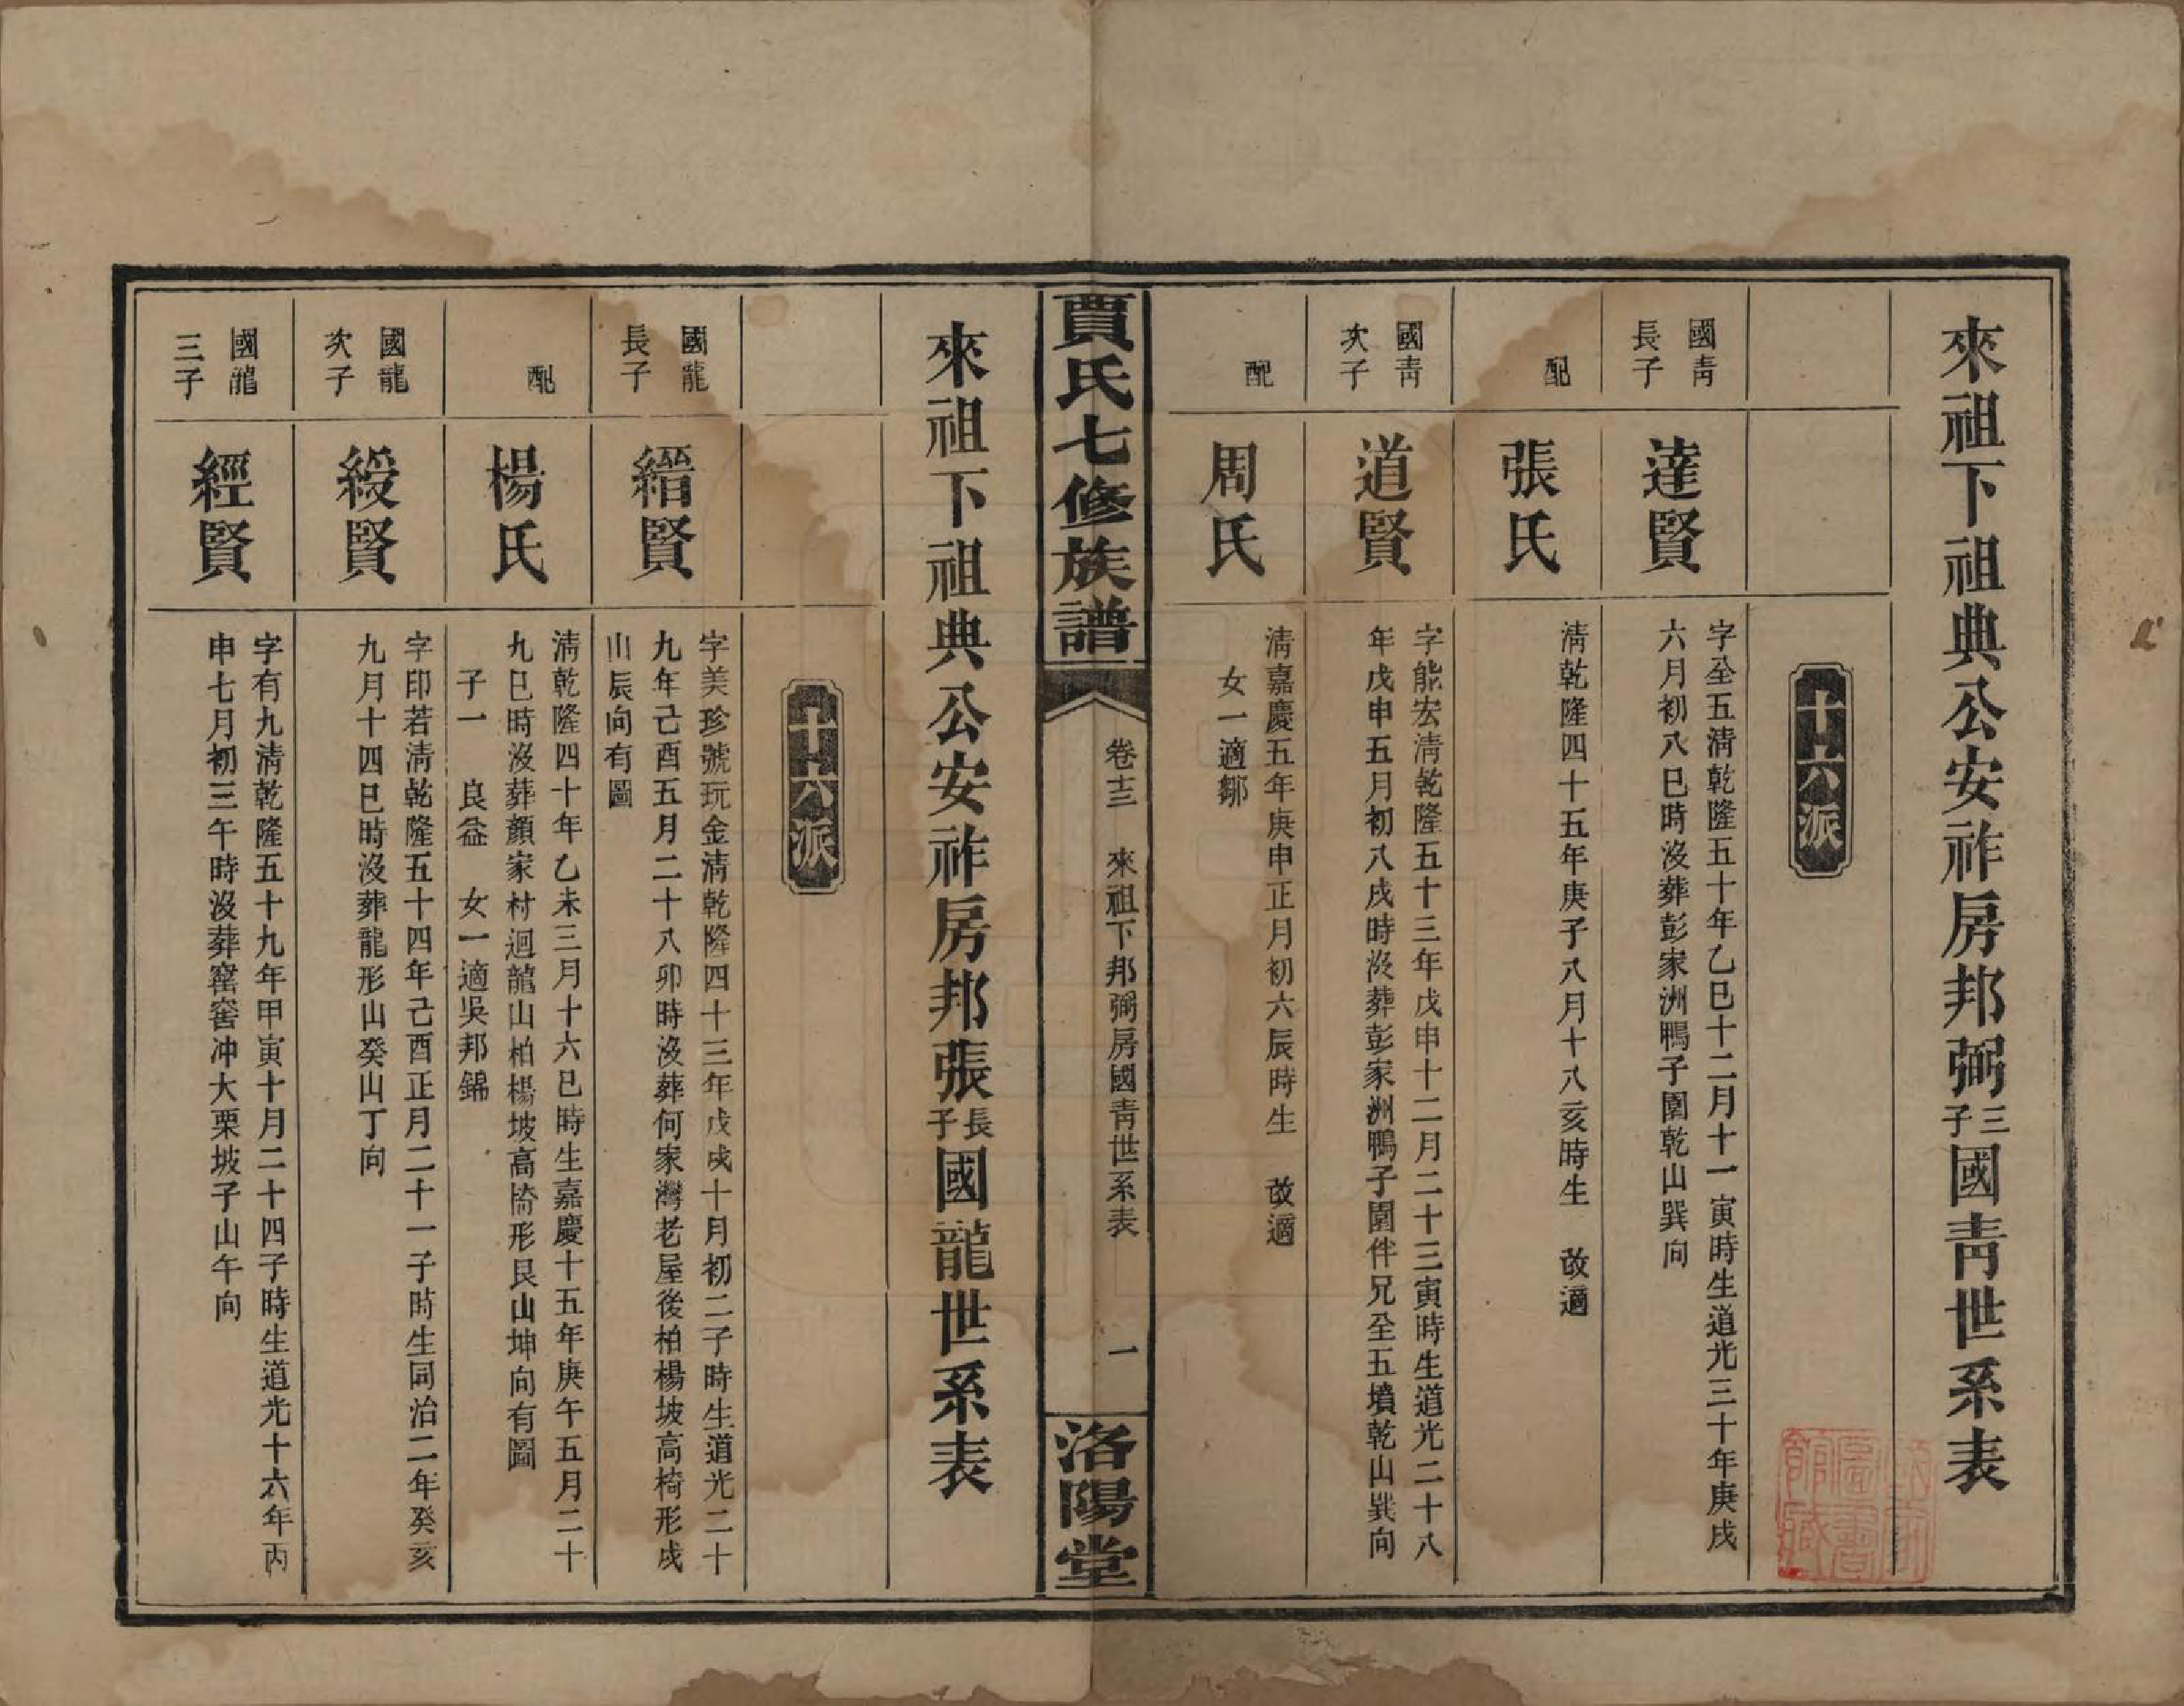 來祖下祖典公安祚房邦弼三子國青世系表
十六派
國青
長子
達賢
字至五清乾隆五十年乙巳十二月十一寅時生道光三十年庚戌
六月初八巳時沒葬彭家洲鴨子園乾山巽向
配
張氏
清乾隆四十五年庚子八月十八亥時生 改適
國青
次子
道賢
字能宏清乾隆五十三年戊申十二月二十三寅時生道光二十八
年戊申五月初八戌時沒葬彭家洲鴨子園伴兄至五墳乾山巽向
配
周氏
清嘉慶五年庚申正月初六辰時生 改適
女一適鄒
賈氏七修族譜
卷十三 來祖下邦弼房國青世系表
一
洛陽堂
來祖下祖典公安祚房邦張長子國龍世系表
十六派
國龍
長子
縉賢
字美珍號玩金清乾隆四十三年戊戌十月初二子時生道光二十
九年己酉五月二十八卯時沒葬何家灣老屋後柏楊坡高椅形戌
山辰向有圖
配
楊氏
清乾隆四十年乙未三月十六巳時生嘉慶十五年庚午五月二十
九巳時沒葬顏家村迴龍山柏楊坡高椅形艮山坤向有圖
子一 良益 女一適吳邦錦
國龍
次子
綬賢
字印若清乾隆五十四年己酉正月二十一子時生同治二年癸亥
九月十四巳時沒葬龍形山癸山丁向
國龍
三子
經賢
字有九清乾隆五十九年甲寅十月二十四子時生道光十六年丙
申七月初三午時沒葬窰窖沖大栗坡子山午向